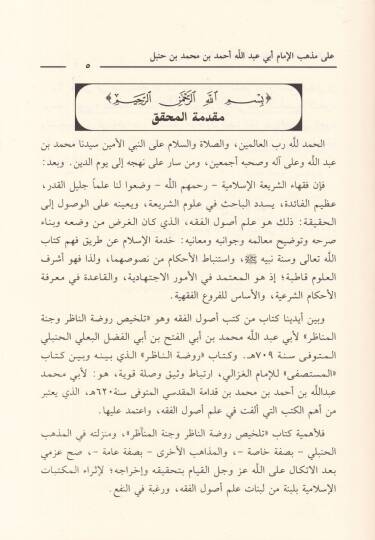 على مذهب الإمام أبي عبد الله أحمد بن محمد بن حنبل
٥
﴿بسم الله الرحمن الرحيم﴾
مقدمة المحقق
الحمد لله رب العالمين، والصلاة والسلام على النبي الأمين سيدنا محمد بن
عبد الله وعلى آله وصحبه أجمعين، ومن سار على نهجه إلى يوم الدين. وبعد:
فإن فقهاء الشريعة الإسلامية – رحمهم الله – وضعوا لنا علماً جليل القدر،
عظيم الفائدة، يسدد الباحث في علوم الشريعة، ويعينه على الوصول إلى
الحقيقة: ذلك هو علم أصول الفقه، الذي كان الغرض من وضعه وبناء
صرحه وتوضيح معالمه وجوانبه ومعانيه: خدمة الإسلام عن طريق فهم كتاب
الله تعالى وسنة نبيه ﷺ، واستنباط الأحكام من نصوصهما، ولذا فهو أشرف
العلوم قاطبة؛ إذ هو المعتمد في الأمور الاجتهادية، والقاعدة في معرفة
الأحكام الشرعية، والأساس للفروع الفقهية.
وبين أيدينا كتاب من كتب أصول الفقه وهو «تلخيص روضة الناظر وجنة
المناظر» لأبي عبد الله محمد بن أبي الفتح بن أبي الفضل البعلي الحنبلي
المتوفى سنة ٧٠٩هـ. وكتاب «روضة الناظر» الذي بينه وبين كتاب
«المستصفى» للإمام الغزالي، ارتباط وثيق وصلة قوية، هو: لأبي محمد
عبدالله بن أحمد بن محمد بن قدامة المقدسي المتوفى سنة٦٢٠هـ، الذي يعتبر
من أهم الكتب التي ألفت في علم أصول الفقه، واعتمد عليها.
فلأهمية كتاب «تلخيص روضة الناظر وجنة المناظر»، ومنزلته في المذهب
الحنبلي – بصفة خاصة –، والمذاهب الأخرى – بصفة عامة –، صح عزمي
بعد الاتكال على الله عز وجل القيام بتحقيقه وإخراجه؛ لإثراء المكتبات
الإسلامية بلبنة من لبنات علم أصول الفقه، ورغبة في النفع.